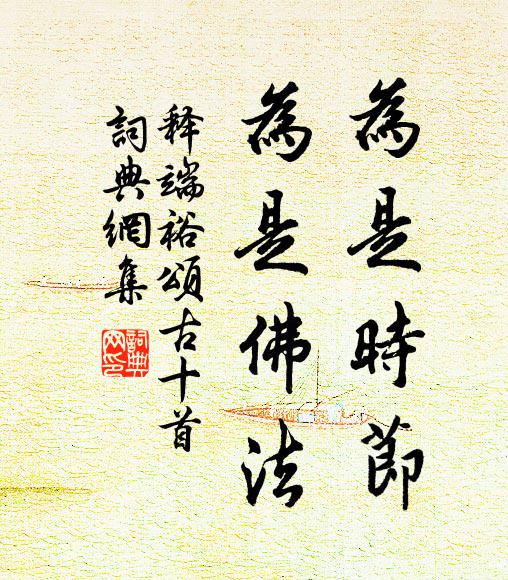 為是時節
為是佛法
释端裕頌古十首
詞典網集
詞典
网印